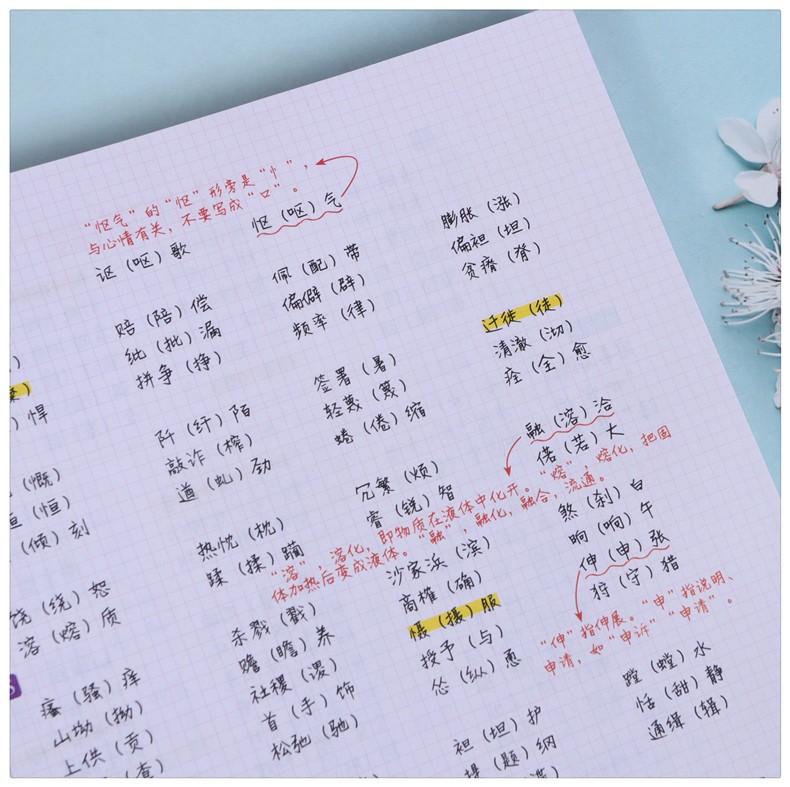 “怄气”的“怄”形旁是“忄”，
与心情有关，不要写成“口”。
讴（呕）歌
赔（陪）偿
纰（批）漏
拼争（挣）
阡（纤）陌
敲诈（榨）
遒（虬）劲
热忱（枕）
蹂（揉）躏
杀戮（戳）
赡（瞻）养
社稷（谡）
首（手）饰
松弛（驰）
怄（呕）气
佩（配）带
频率（律）
签署（暑）
蜷（倦）缩
冗繁（烦）
睿（锐）智
“溶”，溶化，即物质在液体中化开。“熔”，熔化，把固
体加热后变成液体。“融”，融化，融合，流通。
沙家浜（滨）
商榷（确）
慑（摄）服
授予（与）
怂（纵）恿
袒（坦）护
提（题）纲
膨胀（涨）
偏袒（坦）
贫瘠（脊）
迁徙（徒）
清澈（沏）
痊（全）愈
融（溶）洽
偌（若）大
煞（刹）白
晌（响）午
伸（申）张
狩（守）猎
“伸”指伸展。“申”指说明、
申请，如“申诉”“申请”。
蹚（螳）水
恬（甜）静
通缉（辑）
）悍
（慨）
（恒）
（倾）刻
饶（绕）恕
溶（熔）质
瘙（骚）痒
山坳（拗）
上供（贡）
（查）